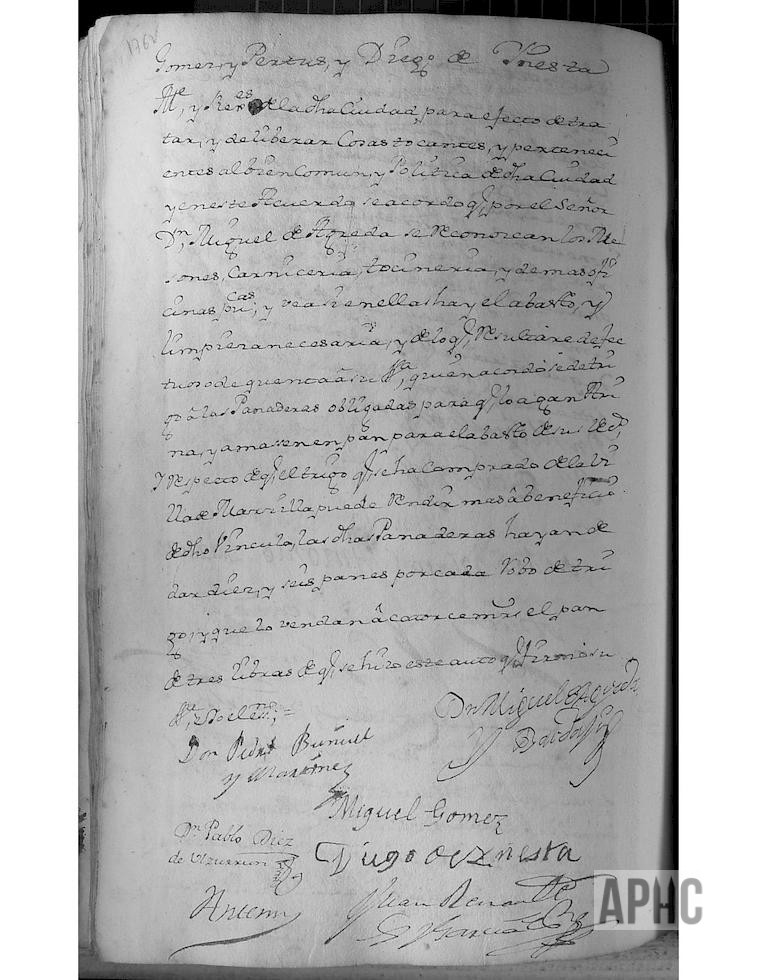 176v
Gomez, y Pertus, y Diego de Ynesta
Alle, y Res de la dha Ciudad, para efecto de tra
tar, y deliberar Cosas tocantes, y perteneci
entes al bien Comun, y Politica de dha Ciudad
y en este Acuerdo se acordo q, por el Señor
Dn, Miguel de Agreda se reconozcan los Me
sones, Carniceria, tocineria, y demas ofi
cinas pucas, y vea si en ellas hay el abasto, y
limpieza necesaria, y de lo q, resultare defec
tuoso de quenta a su Sa, q en acordose de tri
go a las Panaderas obligadas para q, lo agan Ari
na, y amasen en pan para el abasto de sus
Y respecto de q, el trigo q, se ha Comprado de la Vi
lla de Murillo puede rendir mas a beneficio
de dho Vinculo, las dhas Panaderas hayan de
dar diez, y seis panes por cada Robo de tri
go, y que lo vendan a catorce mrs, el pan
de tres libras de q, se hizo este auto q, firmo su
Sa, =
Dn Miguel de Agreda
y
Don Pedro Buñuel
y Martinez
Miguel Gomez
Dn Pablo Diez
de Ulzurrun
Diego de Ynesta
Antemi
Juan Renault
y Garcia
APHC